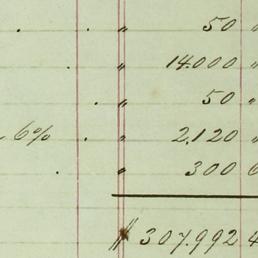 . " 50 "
. " 14.000 "
. " 50 "
6% . " 2,120 "
. " 300 6
$ 307.992 4